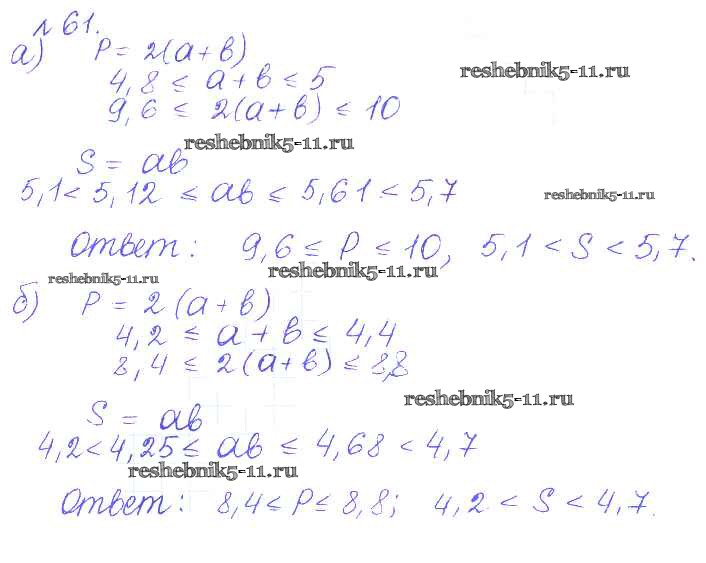 № 61.
а) P = 2(a + в)
reshebnik5-11.ru
4,8 ≤ a + в ≤ 5
9,6 ≤ 2(a + в) ≤ 10
reshebnik5-11.ru
S = aв
5,1 < 5,12 ≤ aв ≤ 5,61 < 5,7
reshebnik5-11.ru
Ответ: 9,6 ≤ P ≤ 10, 5,1 < S < 5,7.
reshebnik5-11.ru
reshebnik5-11.ru
б) P = 2 (a + в)
4,2 ≤ a + в ≤ 4,4
8,4 ≤ 2(a + в) ≤ 8,8
reshebnik5-11.ru
S = aв
4,2 < 4,25 ≤ aв ≤ 4,68 < 4,7
reshebnik5-11.ru
Ответ: 8,4 ≤ P ≤ 8,8; 4,2 < S < 4,7.